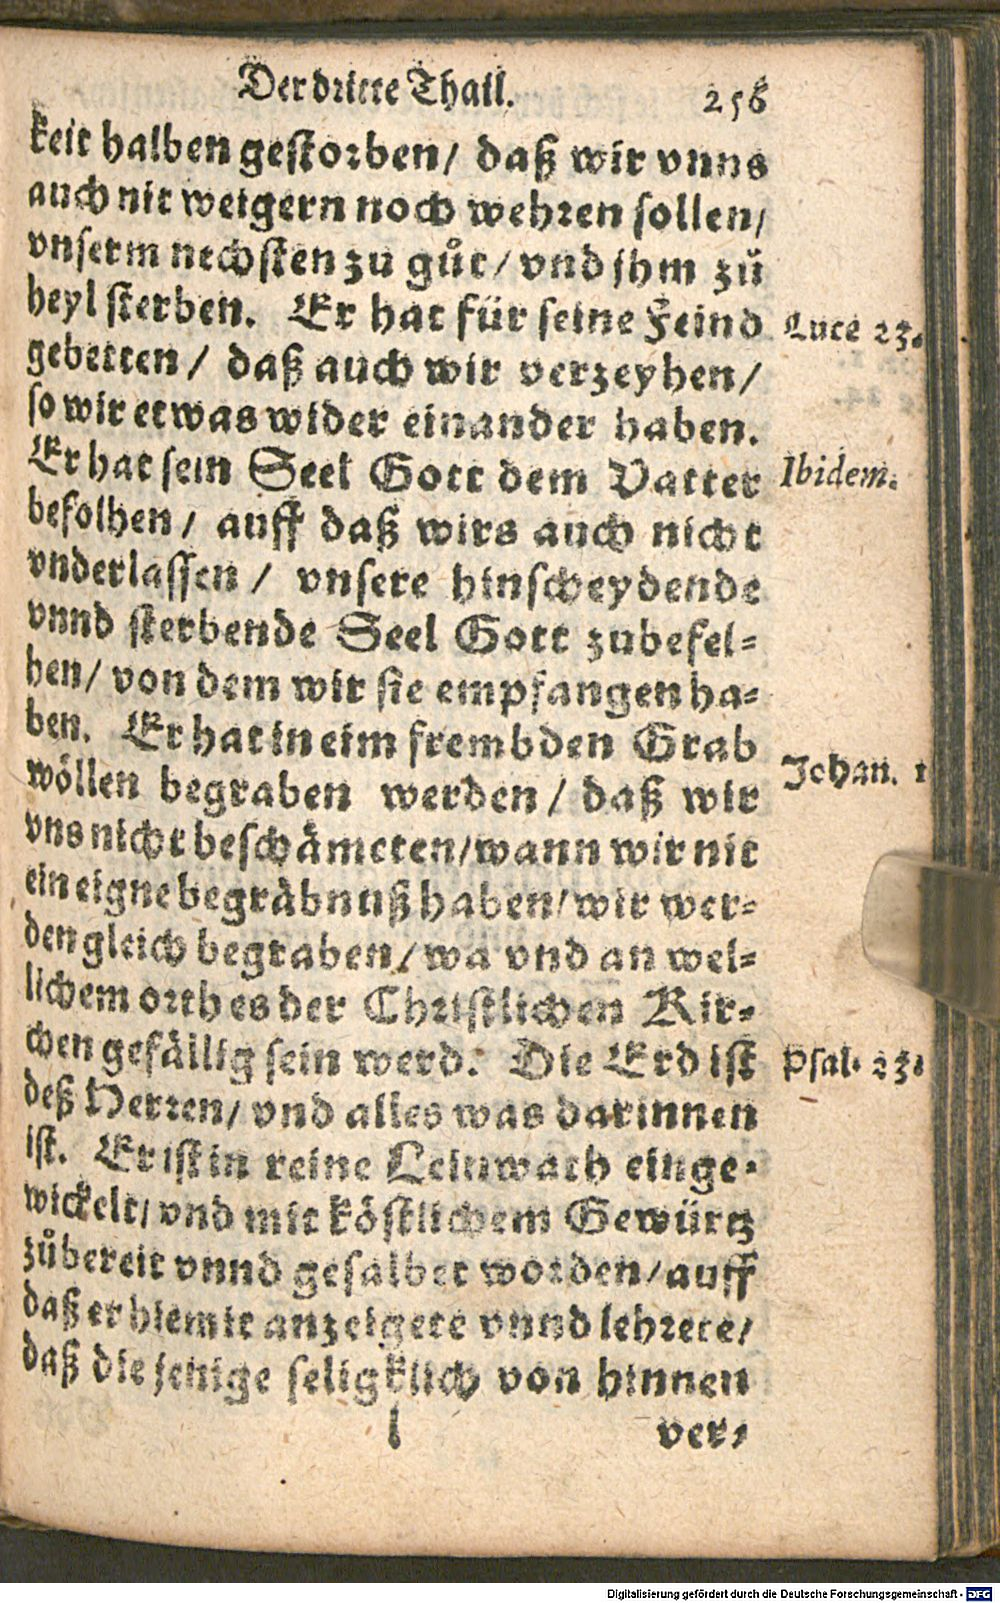 Der dritte Thail. 256
keit halben gestorben/ daß wir vnns
auch nit weigern noch wehren sollen/
vnserm nechsten zu gůt/ vnd jhm zů
heyl sterben. Er hat für seine Feind
Luce 23.
gebetten/ daß auch wir verzeyhen/
so wir etwas wider einander haben.
Er hat sein Seel Gott dem Vatter
Ibidem.
befolhen/ auff daß wirs auch nicht
vnderlassen/ vnsere hinscheydende
vnnd sterbende Seel Gott zubefel-
hen/ von dem wir sie empfangen ha-
ben. Er hat in eim frembden Grab
Johan. 1
wöllen begraben werden/ daß wir
vns nicht beschämeten/ wann wir nit
ein eigne begräbnuß haben/ wir wer-
den gleich begraben/ wa vnd an wel-
lichem orth es der Christlichen Kir-
chen gefällig sein werd. Die Erd ist
Psal. 23.
deß Herren/ vnd alles was darinnen
ist. Er ist in reine Leinwath einge-
wickelt/ vnd mit köstlichem Gewürtz
zůbereit vnnd gesalbet worden/ auff
daß er hiemit anzeigete vnnd lehrete/
daß die jenige seligklich von hinnen
l ver-
Digitalisierung gefördert durch die Deutsche Forschungsgemeinschaft - DFG